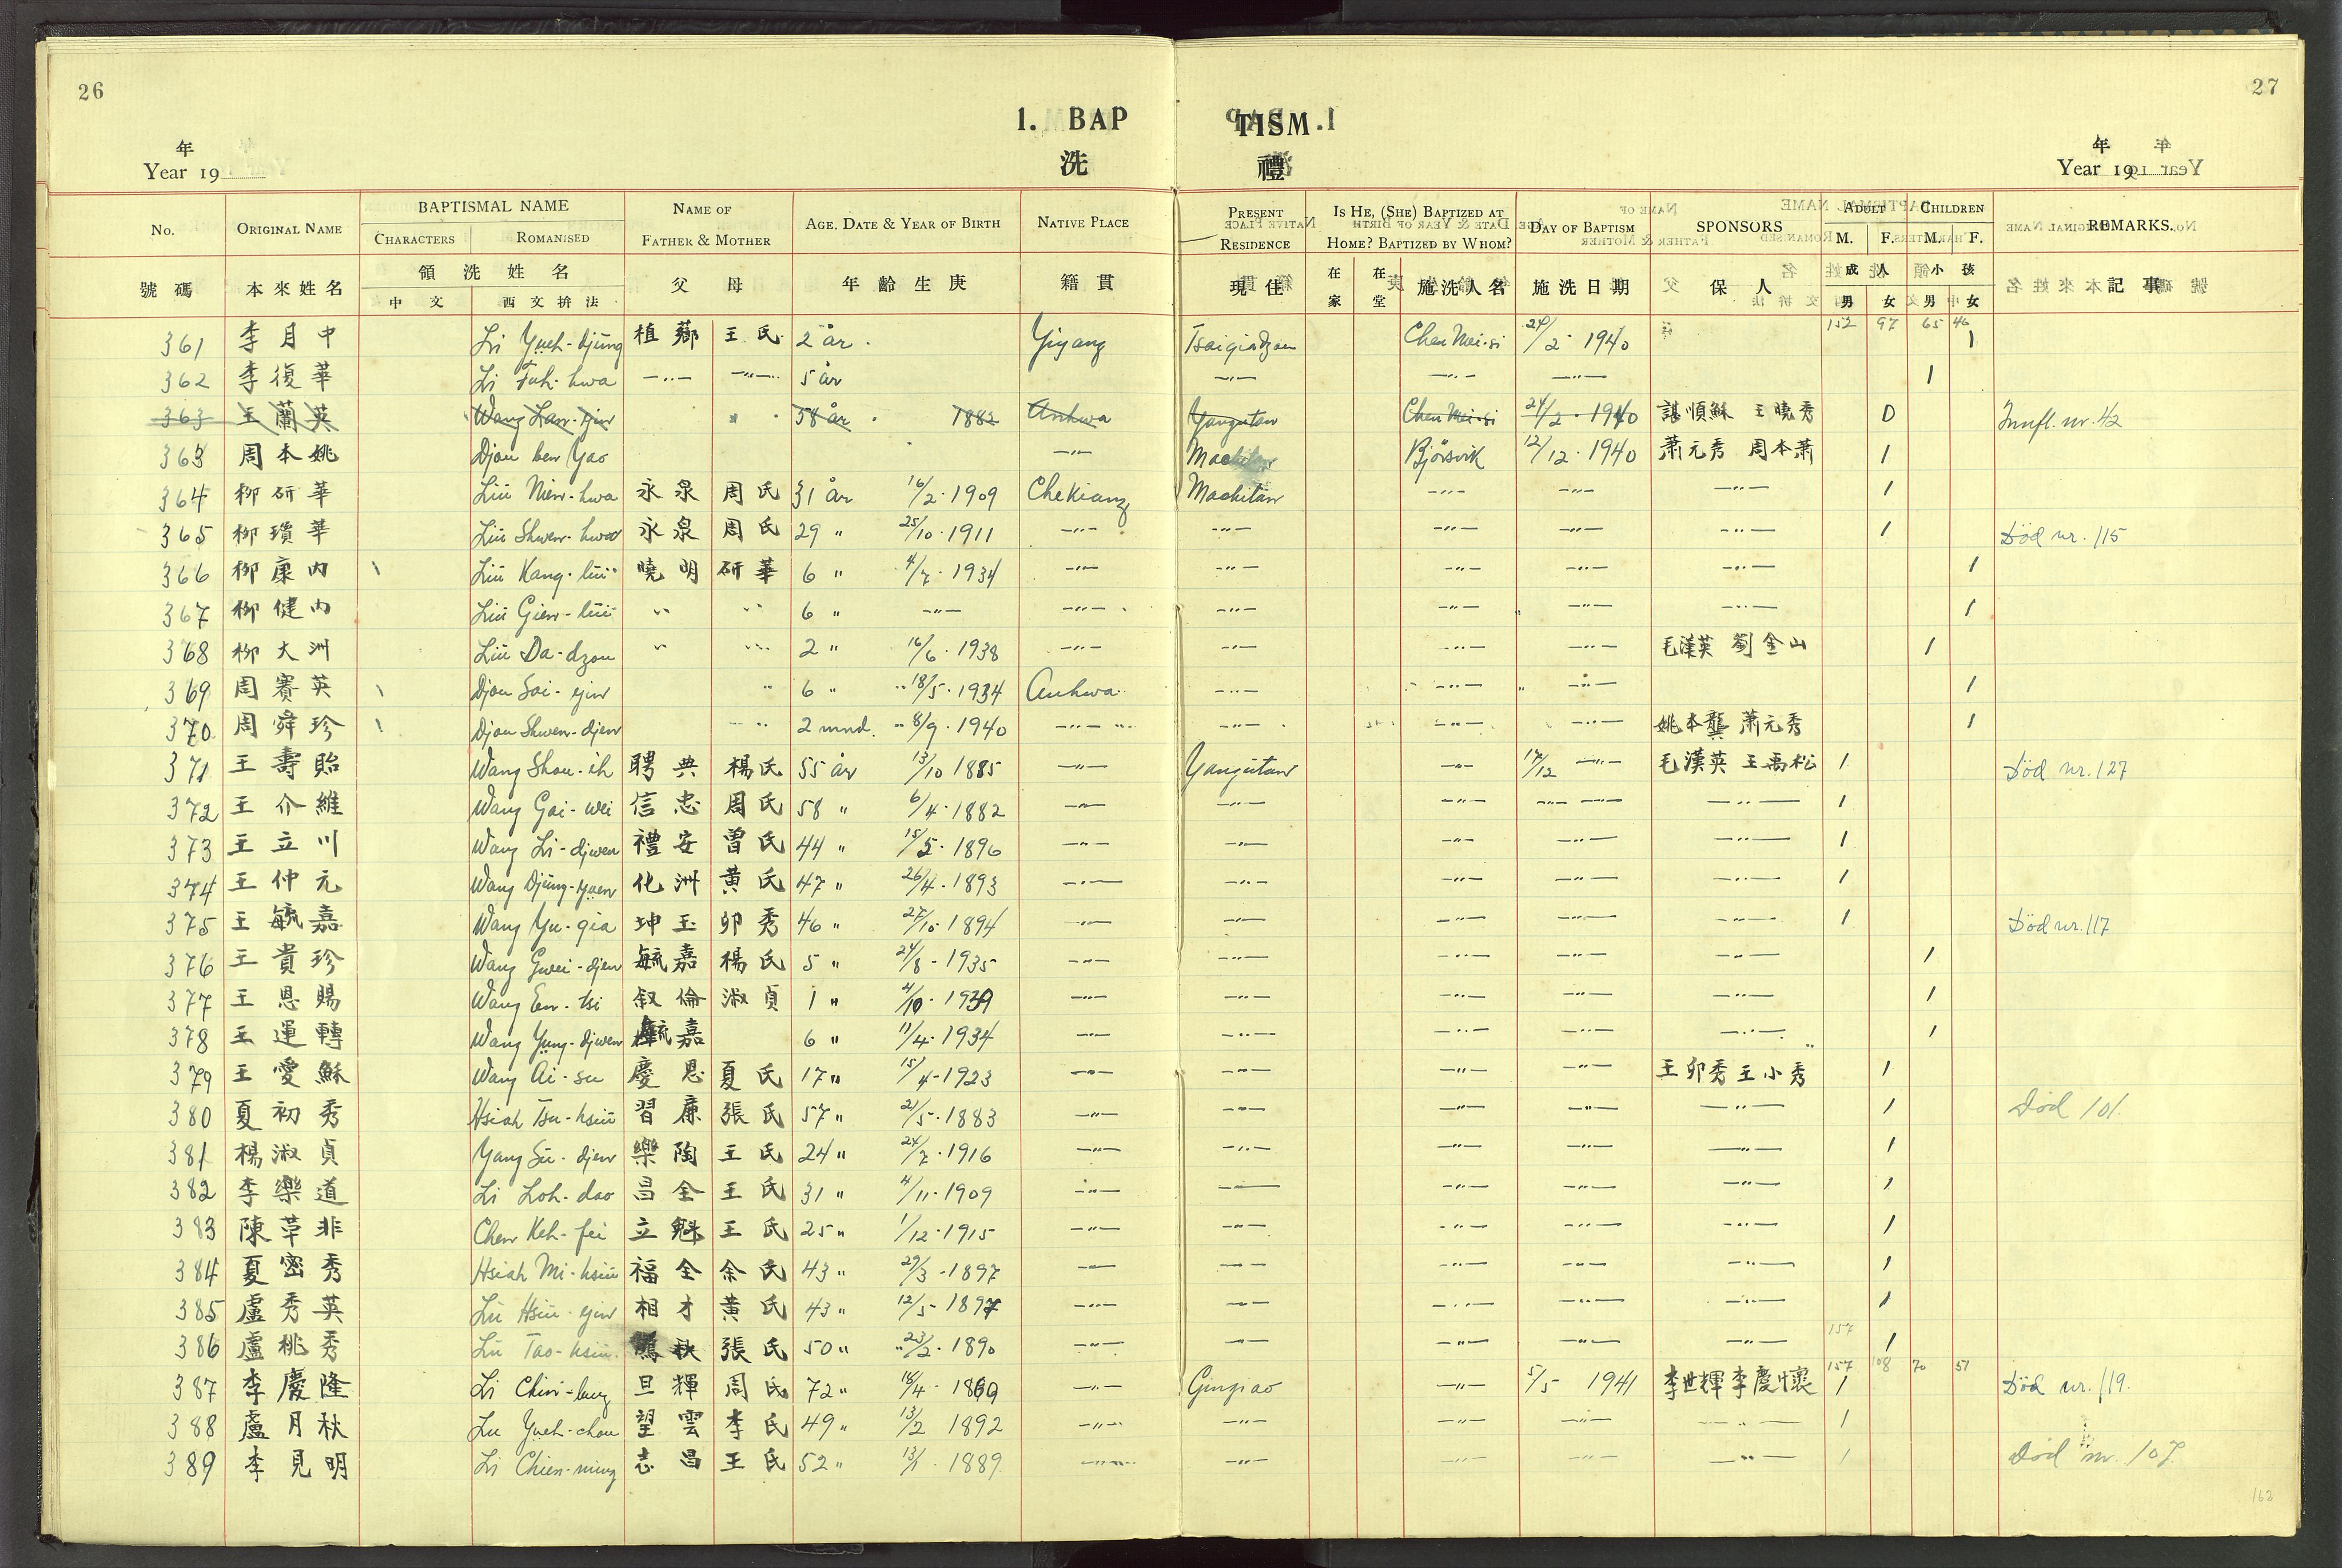 26
27
1. BAPTISM
洗 禮
年
Year 19
年
Year 19
No. ORIGINAL NAME BAPTISMAL NAME CHARACTERS ROMANISED NAME OF FATHER & MOTHER AGE. DATE & YEAR OF BIRTH NATIVE PLACE PRESENT RESIDENCE IS HE, (SHE) BAPTIZED AT HOME? BAPTIZED BY WHOM? DAY OF BAPTISM SPONSORS ADULT M. F. CHILDREN M. F. REMARKS.
號碼 本來姓名 領洗姓名 中文 西文拚法 父母 年齡生庚 籍貫 現住 在家 在堂 施洗人名 施洗日期 保人 成人 男 女 小孩 男 女 記事
152 97 65 46
361 李月中 Li Yueh-djung 植薌 王氏 2 år. Yiyang 24/2 1940 1
362 李復華 Li Fuh-hwa —〃— —〃— 5 år —〃— —〃— —〃— 1
363 王蘭英 Wang Lan-yin 58 år. 1882 Anhwa Yangutan Chen Mei-si 24/2 1940 王曉秀 0 Innfl. nr. 42
363 周本姚 Djou ben Yao —〃— Björsvik 12/12 1940 蕭元秀 周本蕭 1
364 柳研華 Liu Nien-hwa 永泉 周氏 31 år 16/2 1909 Chekiang Machitan —〃— —〃— —〃— 1
365 柳瓊華 永泉 周氏 29 〃 25/10 1911 —〃— —〃— —〃— —〃— —〃— 1 Död nr. 115
366 柳康内 曉明 研華 6 〃 4/7 1934 —〃— —〃— —〃— —〃— —〃— 1
367 柳健内 〃 〃 6 〃 —〃— —〃— —〃— —〃— —〃— —〃— 1
368 柳大洲 Liu Da-dzou 〃 〃 2 〃 16/6 1938 —〃— —〃— —〃— —〃— 毛漢英 劉金山 1
369 周賽英 Djou Sai-yin 〃 6 〃 18/5 1934 Anhwa —〃— —〃— —〃— 1
370 周舜珍 Djou Shwen-djen 2 mnd. 8/9 1940 —〃— —〃— —〃— —〃— 姚本龔 蕭元秀 1
371 王壽貽 Wang Shou-ih 聘典 楊氏 55 år 13/10 1885 —〃— Yangutan —〃— 17/12 —〃— 毛漢英 王禹松 1 Död nr. 127
372 王介維 Wang Gai-wei 信忠 周氏 58 〃 6/4 1882 —〃— —〃— —〃— —〃— —〃— —〃— 1
373 王立川 Wang Li-djwen 禮安 曾氏 44 〃 15/5 1896 —〃— —〃— —〃— —〃— —〃— 1
374 王仲元 Wang Djung-yuen 化洲 黃氏 47 〃 26/4 1893 —〃— —〃— —〃— —〃— —〃— 1
375 王毓嘉 Wang Yu-gia 坤玉 卯秀 46 〃 27/10 1894 —〃— —〃— —〃— —〃— —〃— 1 Död nr. 117
376 王貴珍 Wang Gwei-djen 毓嘉 楊氏 5 〃 24/8 1935 —〃— —〃— —〃— —〃— —〃— 1
377 王恩賜 Wang En-tsi 叙倫 淑貞 1 〃 4/10 1939 —〃— —〃— —〃— —〃— —〃— 1
378 王運轉 Wang Yung-djwen 毓嘉 6 〃 11/4 1934 —〃— —〃— —〃— —〃— 1
379 王愛穌 Wang Ai-su 慶恩 夏氏 17 〃 15/4 1923 —〃— —〃— —〃— —〃— 王卯秀 王小秀 1
380 夏初秀 Hsiah Tsu-hsiu 習廉 張氏 57 〃 21/5 1883 —〃— —〃— —〃— —〃— —〃— 1 Död 101.
381 楊淑貞 Yang Su-djen 樂陶 王氏 24 〃 24/7 1916 —〃— —〃— —〃— —〃— —〃— 1
382 李樂道 Li Loh-dao 昌全 王氏 31 〃 4/11 1909 —〃— —〃— —〃— —〃— 1
383 陳革非 Chen Keh-fei 立魁 王氏 25 〃 1/12 1915 —〃— —〃— —〃— —〃— —〃— 1
384 夏密秀 Hsiah Mi-hsiu 福全 余氏 43 〃 29/3 1897 —〃— —〃— —〃— —〃— —〃— 1
385 盧秀英 Lu Hsiu-yin 相才 黃氏 43 〃 12/5 1897 —〃— —〃— —〃— —〃— —〃— 1
386 盧桃秀 Lu Tao-hsiu 秋 張氏 50 〃 23/2 1890 —〃— —〃— —〃— —〃— —〃— 157 1
157 108 70 51
387 李慶隆 旦輝 周氏 72 〃 16/4 1869 —〃— Ginqiao —〃— 5/5 1941 李世輝 李慶懷 1 Död nr. 119.
388 盧月秋 Lu Yueh-chou 望雲 李氏 49 〃 13/2 1892 —〃— —〃— —〃— —〃— —〃— 1
389 李見明 Li Chien-ming 志昌 王氏 52 〃 13/1 1889 —〃— —〃— —〃— —〃— —〃— 1 Död nr. 107
162